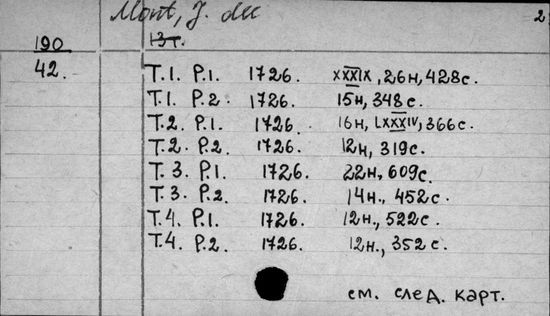 Mont, J. du 2
190 13т.
42. T.1. P.1. 1726. XXXIX, 26н, 428с.
T.1. P.2. 1726. 15н, 348с.
T.2. P.1. 1726. 16н, LXXXIV, 366с.
T.2. P.2. 1726. 12н, 319с.
T.3. P.1. 1726. 22н, 609с.
T.3. P.2. 1726. 14н., 452с.
T.4. P.1. 1726. 12н., 522с.
T.4. P.2. 1726. 12н., 352с.
см. след. карт.